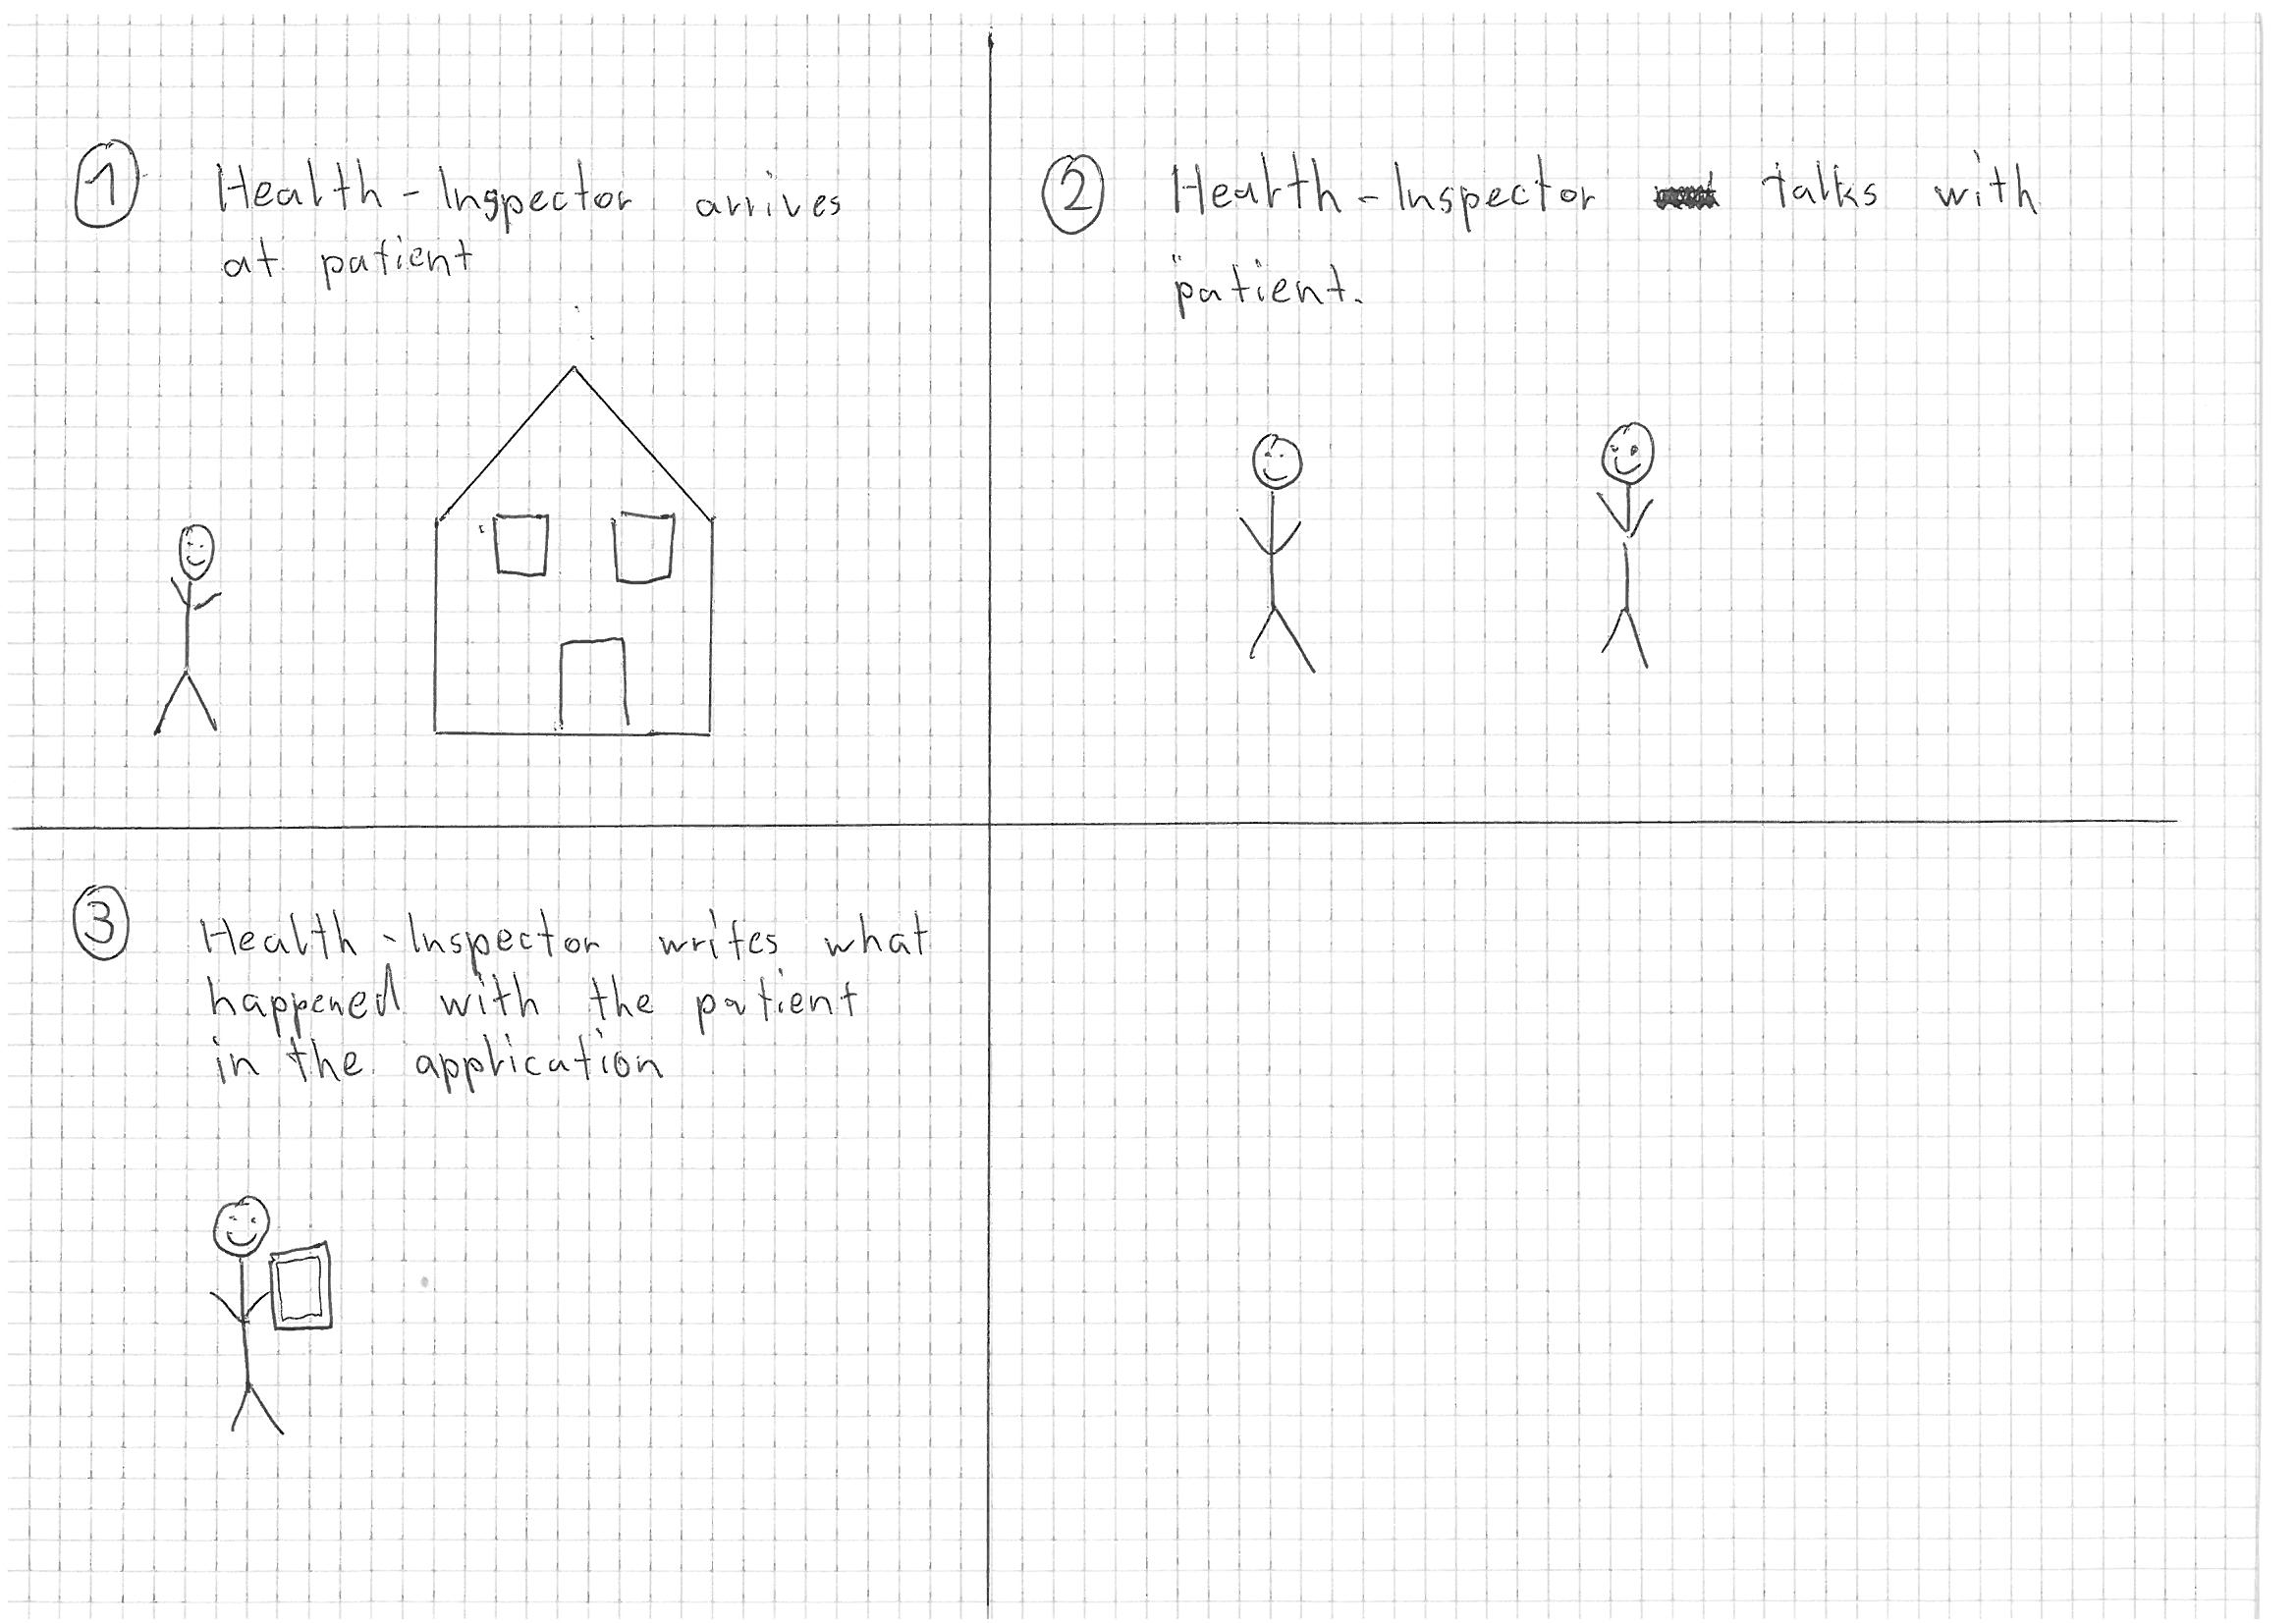 1 Health-Inspector arrives
at patient
2 Health-Inspector talks with
patient.
3 Health-Inspector writes what
happened with the patient
in the application